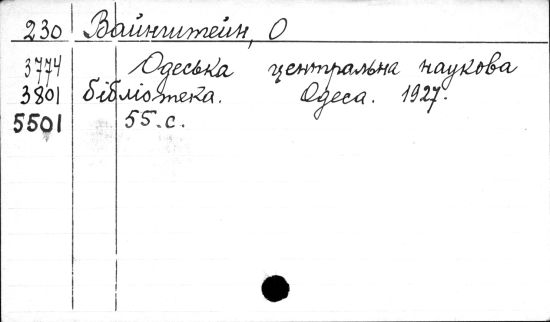 230 Вайнштейн, О
3774 Одеська центральна наукова
3801 бібліотека. Одеса. 1927.
5501 55.с.